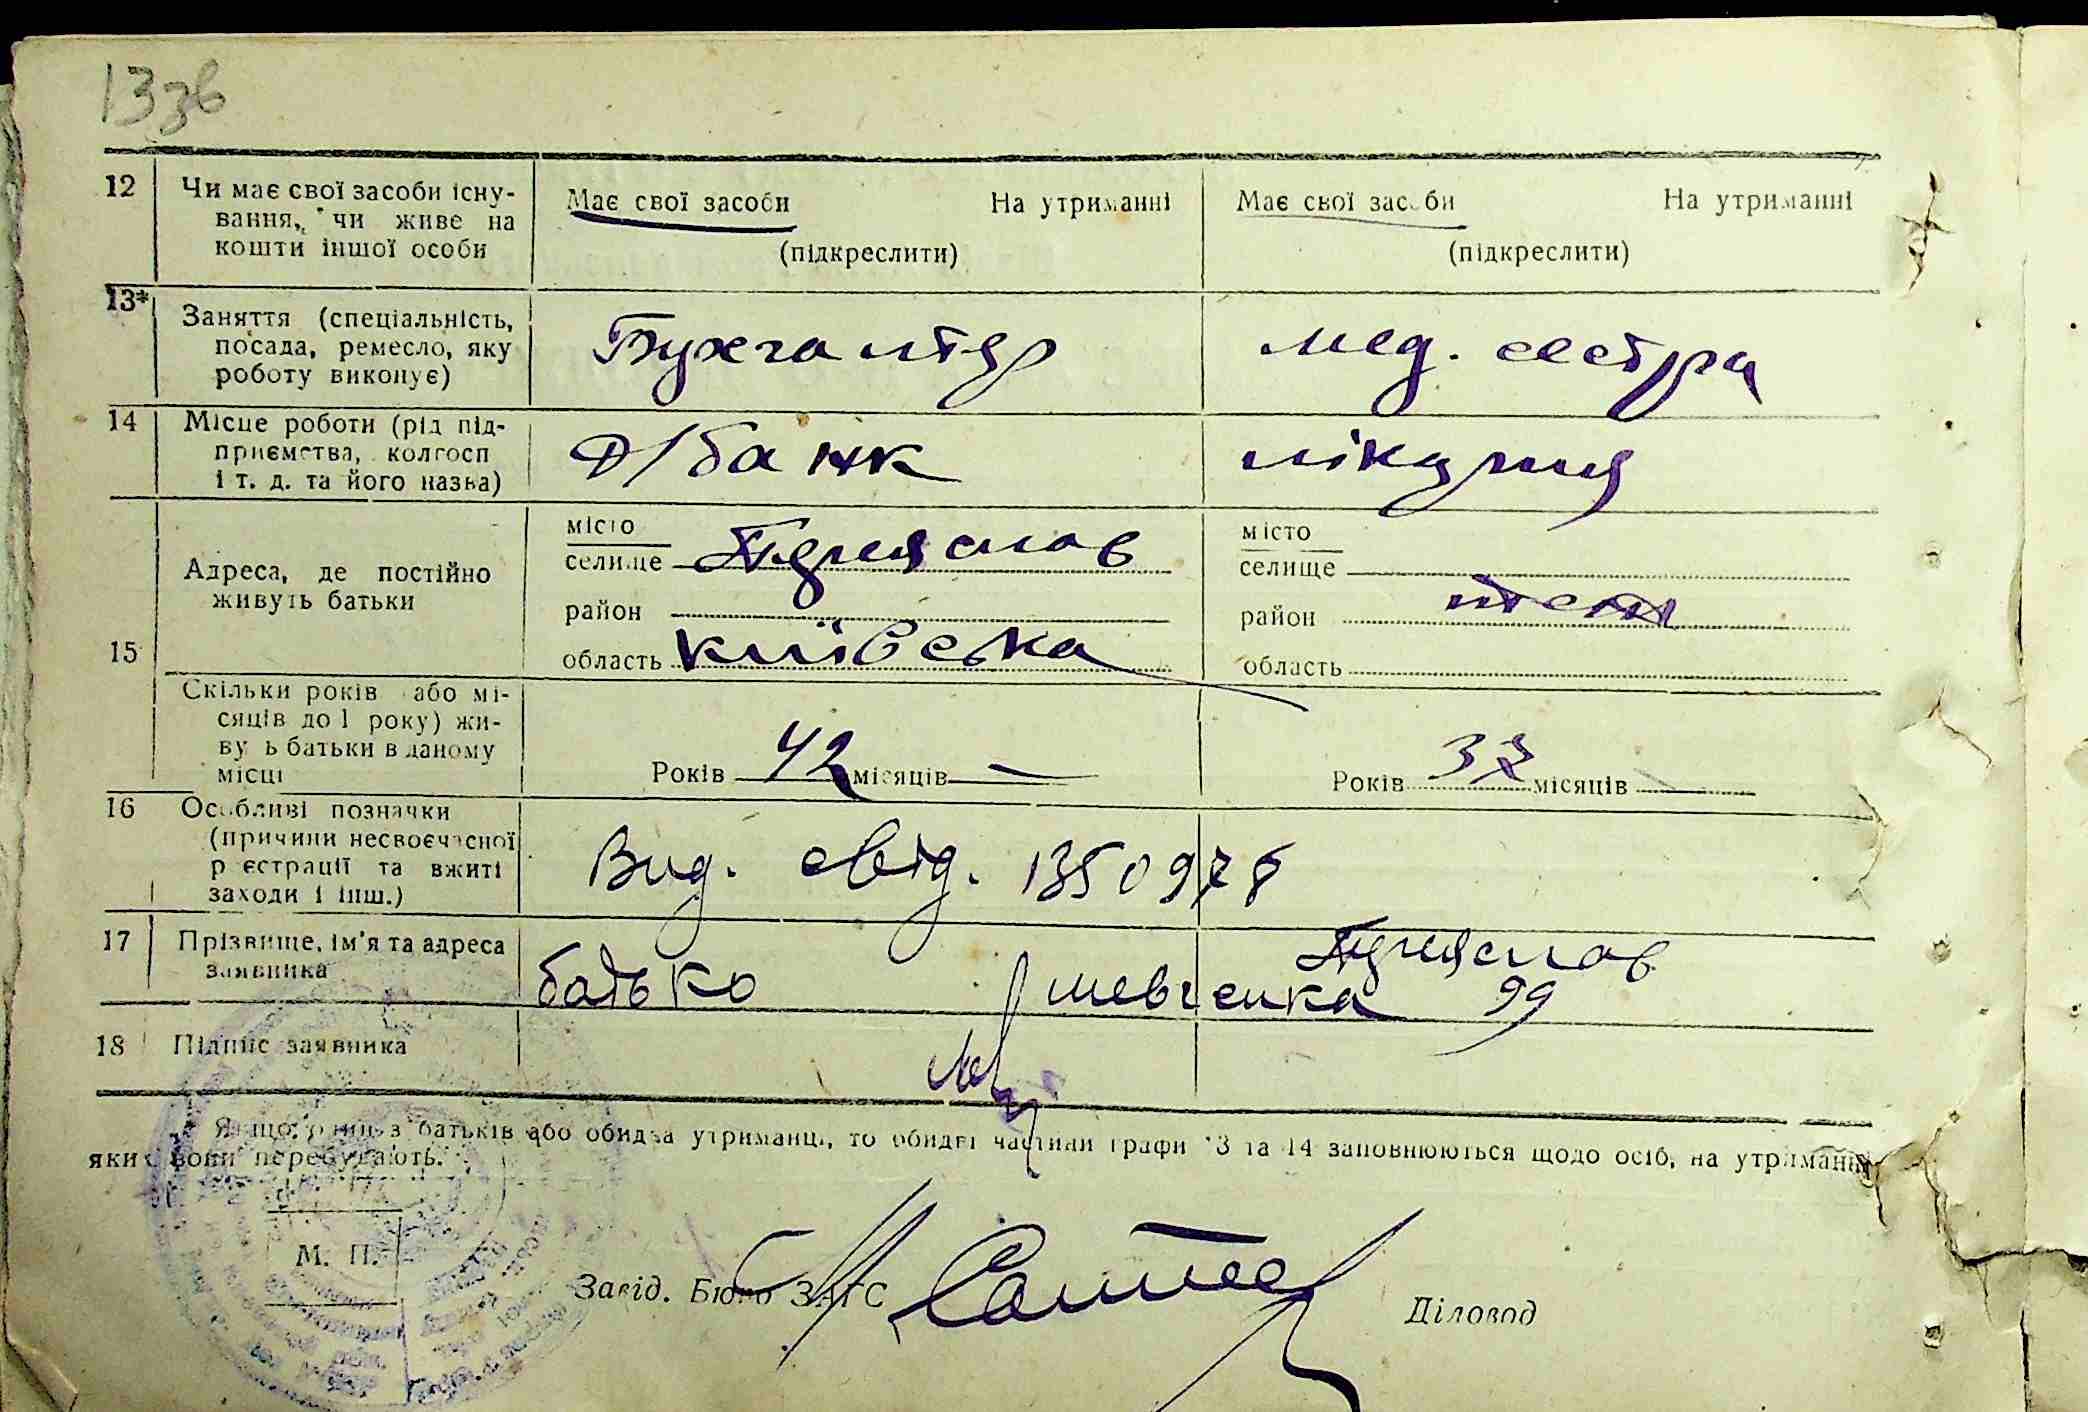 13зв
12 Чи має свої засоби існу- Має свої засоби На утриманні Має свої засоби На утриманні
вання, чи живе на
кошти іншої особи (підкреслити) (підкреслити)
13* Заняття (спеціальність,
посада, ремесло, яку Бухгалтер мед. сестра
роботу виконує)
14 Місце роботи (рід під-
приємства, колгосп Д/банк лікарня
і т. д. та його назва)
місто місто
селище Переяслав селище
Адреса, де постійно
живуть батьки
район район теж
15 область Київська область
Скільки років або мі-
сяців до 1 року) жи-
вуть батьки в даному
місці Років 42 місяців — Років 37 місяців —
16 Особливі позначки
(причини несвоєчасної
реєстрації та вжиті Вид. свід. 1350978
заходи і інш.)
17 Прізвище, ім'я та адреса Переяслав
заявника батько Шевченка 99
18 Підпис заявника
Якщо один з батьків або обидва утриманці, то обидві частини графи 13 та 14 заповнюються щодо осіб, на утриманні
яких вони перебувають.
М. П.
Завід. Бюро ЗАГС Діловод